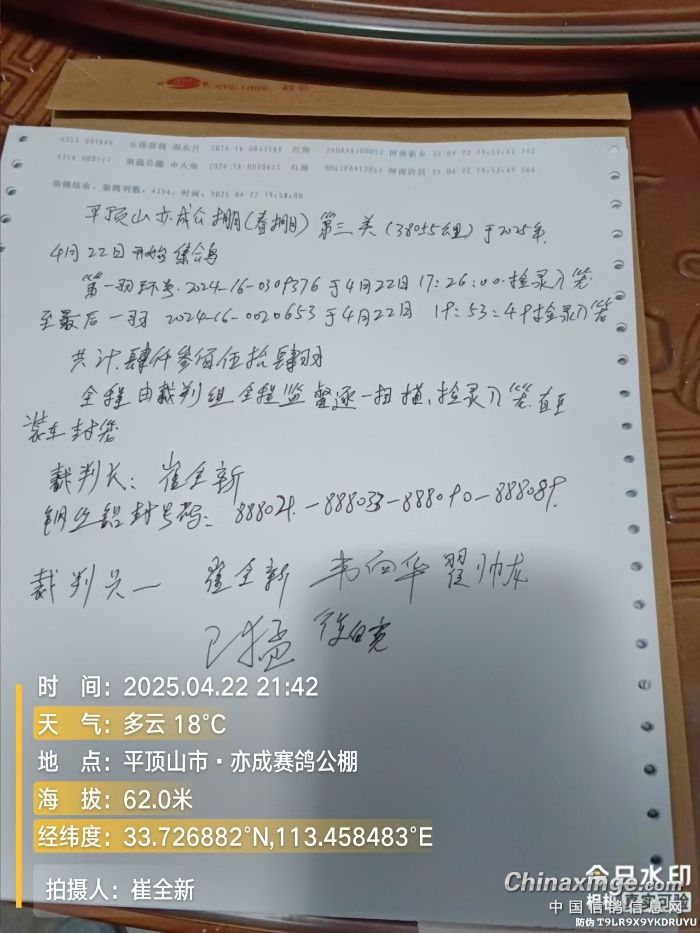 4353 001888 2024-16-0841589 红绛 河南新乡 25-04-22 19:53:47
4354 000771 奥森公棚 2024-16-0020653 红绛 河南许昌 25-04-22 19:53:49
集鸽结束, 集鸽羽数: 4354, 时间: 2025-04-22 19:58:00
平顶山亦成公棚(春棚)第三关(38055组)于2025年
4月22日开始集鸽
第一羽环号:2024-16-0309376于4月22日17:26:00检录入笼
至最后一羽 2024-16-0020653于4月22日 19:53:49检录入笼
共计肆仟参佰伍拾肆羽
全程由裁判组全程监督逐一扫描、检录入笼直至
装车封笼
裁判长:崔全新
钢丝铝封号码:
裁判员— 崔全新 韦向华 翟帅龙
时 间: 2025.04.22 21:42
天 气: 多云 18℃
地 点: 平顶山市·亦成赛鸽公棚
海 拔: 62.0米
经纬度: 33.726882°N,113.458483°E
拍摄人: 崔全新
今日水印
相机 真实可验
Chinaxinge.com
中国信鸽信息网
防伪 T9LR9X9YKDRUYU